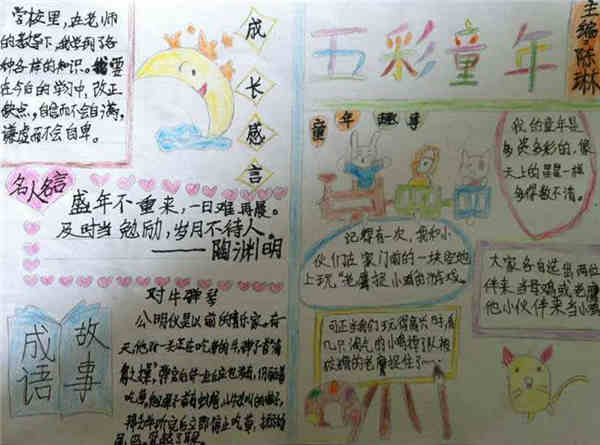 学校里，在老师
的教导下，我学到了各
种各样的知识。我要
在今日的学习中，改正
缺点，自信而不会自满，
谦虚而不会自卑。
成长感言
名人名言
盛年不重来，一日难再晨。
及时当勉励，岁月不待人。
——陶渊明
成语
故事
对牛弹琴
公明仪是以前的音乐家。有一
天，他对一头正在吃草的牛弹了首
五彩童年
主编：陈琳
童年趣事
我的童年是
多姿多彩的，像
天上的星星一样
多得数不清。
记得有一次，我和小
伙们在家门前的一块空地
上玩“老鹰捉小鸡的游戏。
大家各自选出两位
伴来当母鸡或老鹰
他小伙伴来当小
可正当我们玩得高兴时，有
几只淘气的小鸡掉了队，被
狡猾的老鹰捉住了……